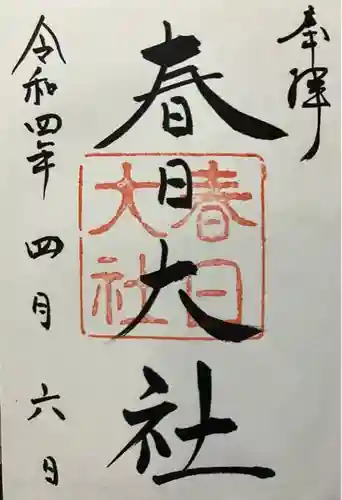 奉拝
春日大社
春日
大社
令和四年四月六日